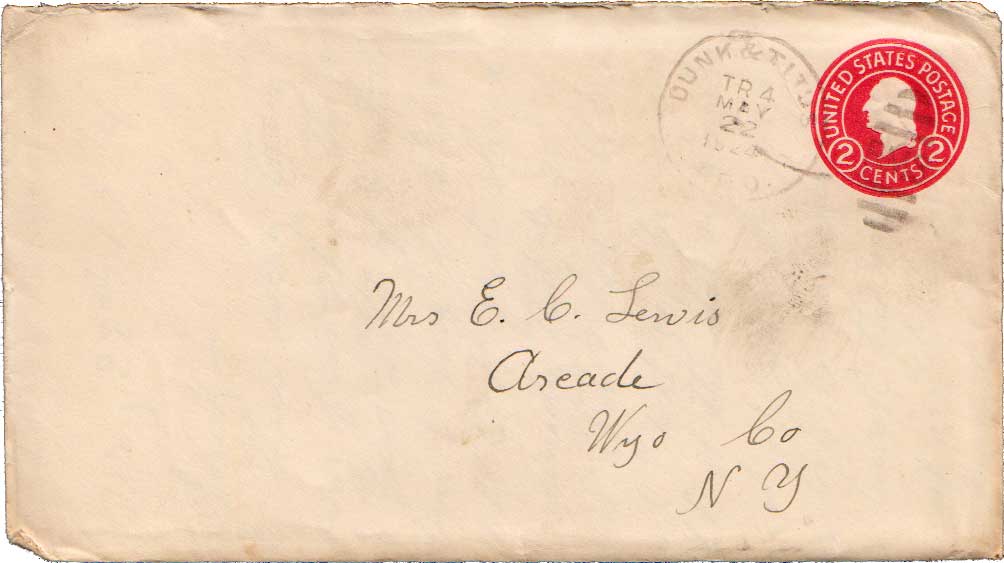 DUNK & TITUS
TR 4
MAY
22
R.P.O.
UNITED STATES POSTAGE
2 CENTS 2
Mrs E. C. Lewis
Arcade
Wyo Co
N Y